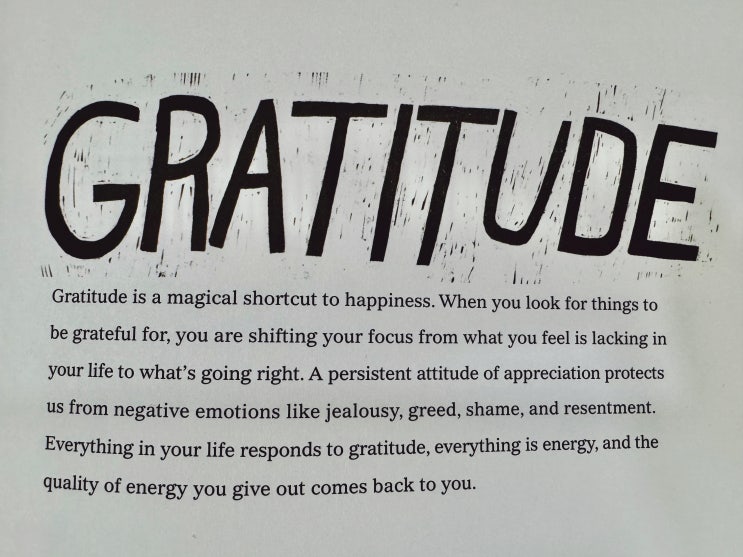 GRATITUDE
Gratitude is a magical shortcut to happiness. When you look for things to
be grateful for, you are shifting your focus from what you feel is lacking in
your life to what’s going right. A persistent attitude of appreciation protects
us from negative emotions like jealousy, greed, shame, and resentment.
Everything in your life responds to gratitude, everything is energy, and the
quality of energy you give out comes back to you.